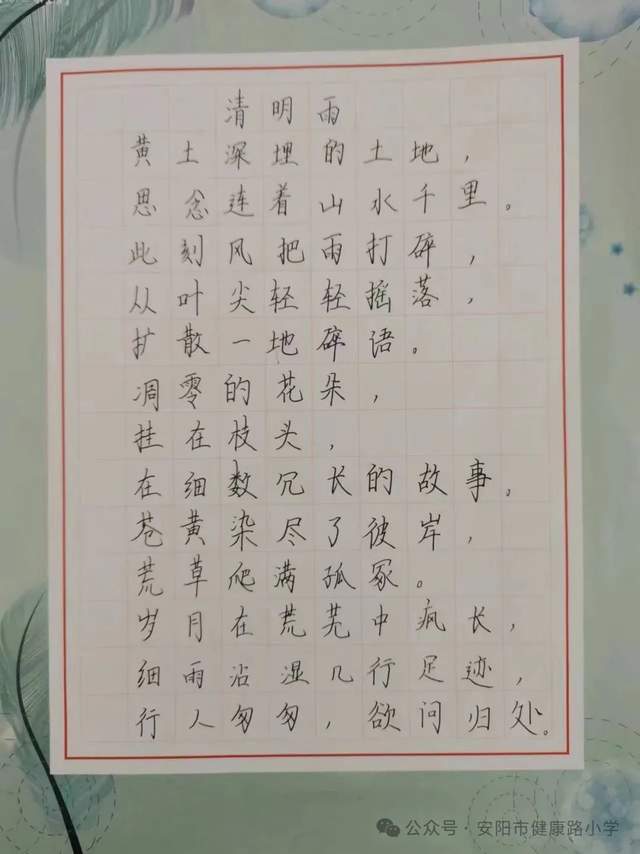 清明雨
黄土深埋的土地，
思念连着山水千里。
此刻风把雨打碎，
从叶尖轻轻摇落，
扩散一地碎语。
凋零的花朵，
挂在枝头，
在细数冗长的故事。
苍黄染尽了彼岸，
荒草爬满孤冢。
岁月在荒芜中疯长，
细雨沾湿几行足迹，
行人匆匆，欲问归处。
公众号·安阳市健康路小学